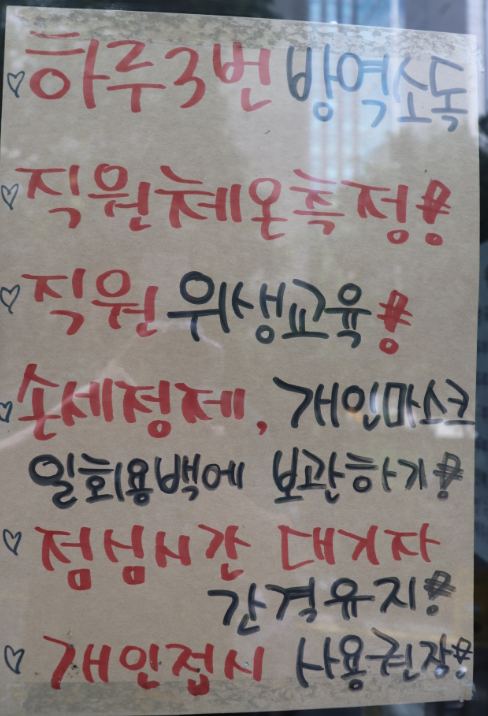 ♡하루3번 방역소독
♡직원체온측정!
♡직원 위생교육!
♡손세정제, 개인마스크
일회용백에 보관하기!
♡점심시간 대기자
간격유지!
♡개인접시 사용권장!